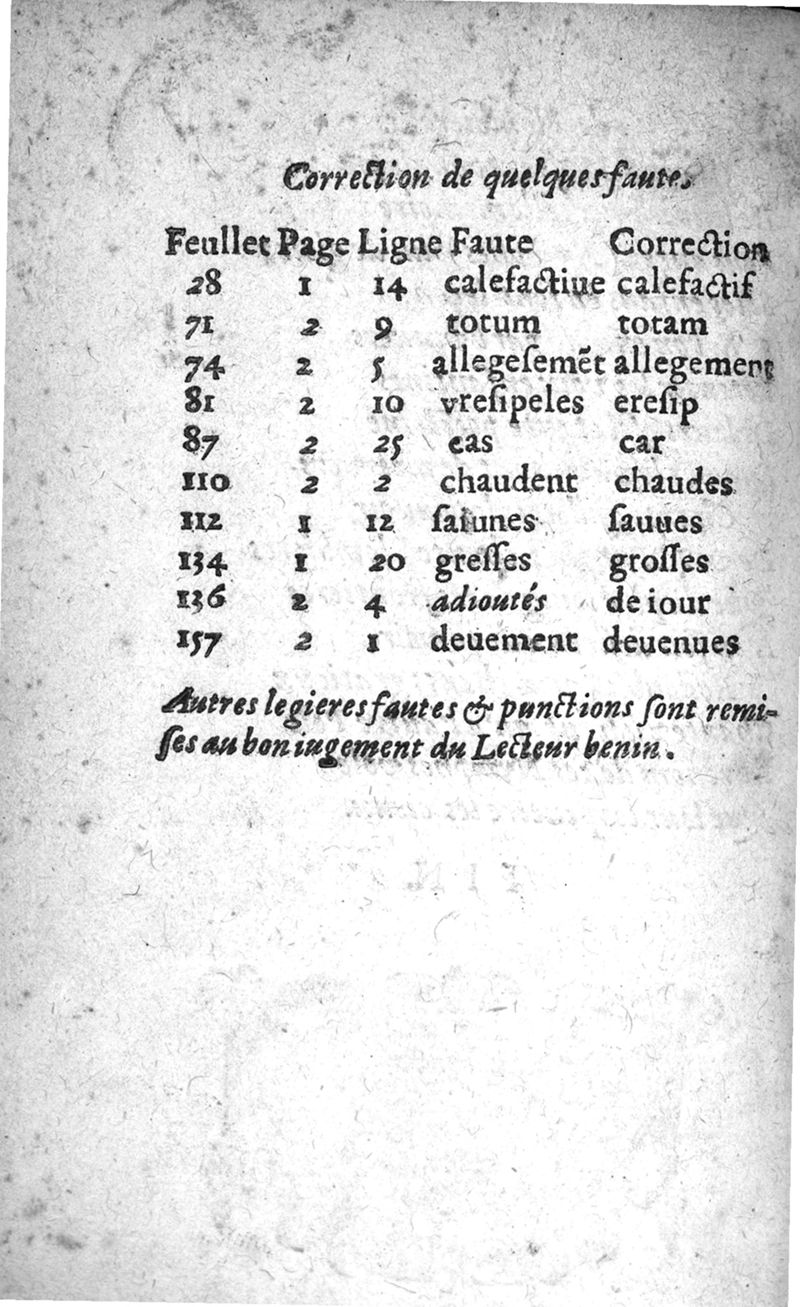 Correction de quelques faute.
Feullet Page Ligne Faute Correction
28 1 14 calefactiue calefactif
71 2 9 totum totam
74 2 5 allegeſemẽt allegement
81 2 10 vreſipeles ereſip
87 2 25 eas car
110 2 2 chaudent chaudes
112 1 12 ſaiunes ſauues
134 1 20 greſſes groſſes
136 2 4 adioutés de iour
157 2 1 deuement deuenues
Autres legieres fautes & punctions ſont remi-
ſes au bon iugement du Lecteur benin.